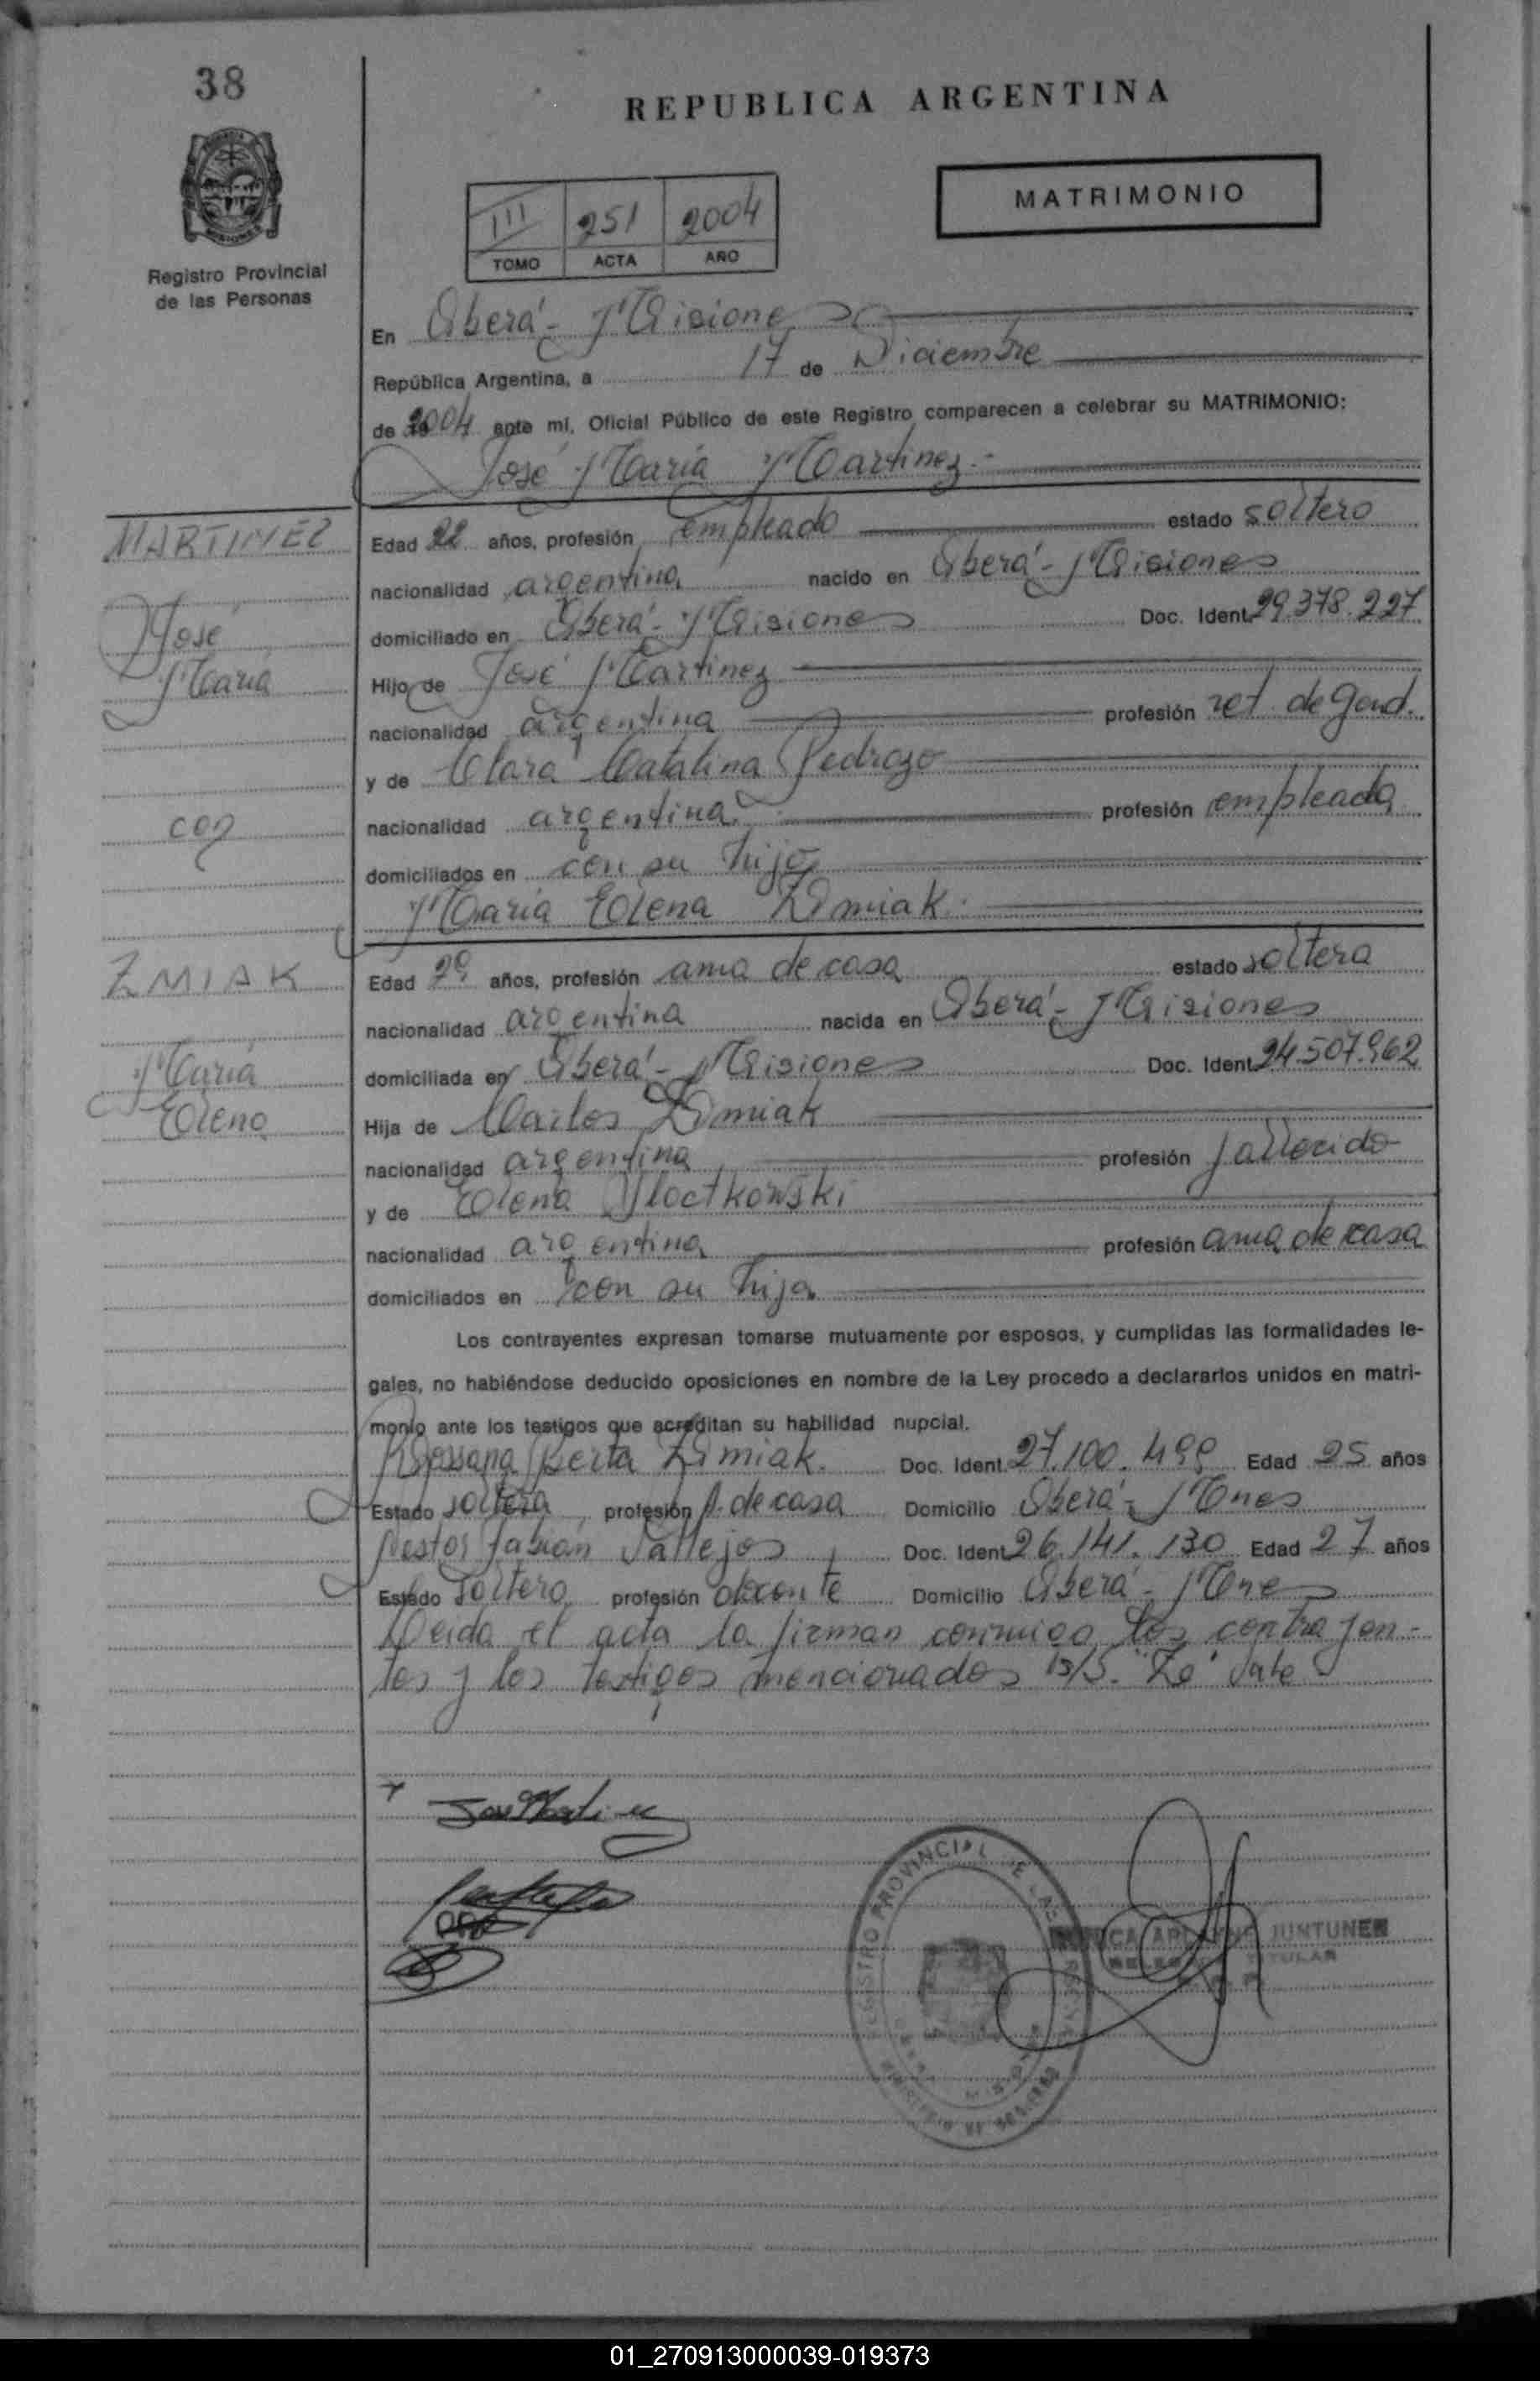 38
REPUBLICA ARGENTINA
MATRIMONIO
III 251 2004
TOMO ACTA AÑO
Registro Provincial
de las Personas
En Oberá - Misiones
República Argentina, a 17 de Diciembre
de 2004 ante mí, Oficial Público de este Registro comparecen a celebrar su MATRIMONIO:
José María Martinez.-
MARTINEZ
José
María
con
ZMIAK
María
Elena
Edad 22 años, profesión empleado estado soltero
nacionalidad argentina nacido en Oberá - Misiones
domiciliado en Oberá - Misiones Doc. Ident. 29.378.227
Hijo de José Martinez
nacionalidad argentina profesión ret. de Gend.
y de Clara Catalina Pedrozo
nacionalidad argentina. profesión empleada
domiciliados en con su hijo
María Elena Zmiak.
Edad 29 años, profesión ama de casa estado soltera
nacionalidad argentina nacida en Oberá - Misiones
domiciliada en Oberá - Misiones Doc. Ident. 24.507.962
Hija de Carlos Zmiak
nacionalidad argentina profesión fallecido
y de Elena
nacionalidad argentina profesión ama de casa
domiciliados en con su hija
Los contrayentes expresan tomarse mutuamente por esposos, y cumplidas las formalidades le-
gales, no habiéndose deducido oposiciones en nombre de la Ley procedo a declararlos unidos en matri-
monio ante los testigos que acreditan su habilidad nupcial.
Rossana Berta Zmiak. Doc. Ident. 27.100.499 Edad 25 años
Estado soltera profesión A. de casa Domicilio Oberá - Mnes
Nestor Fabián Vallejos Doc. Ident. 26.141.130 Edad 27 años
Estado soltero profesión docente Domicilio Oberá - Mnes
Leida el acta la firman conmigo los contrayen-
tes y los testigos mencionados S/S. Vale
REGISTRO PROVINCIAL DE LAS PERSONAS
JUNTUNEN
TITULAR
01_270913000039-019373